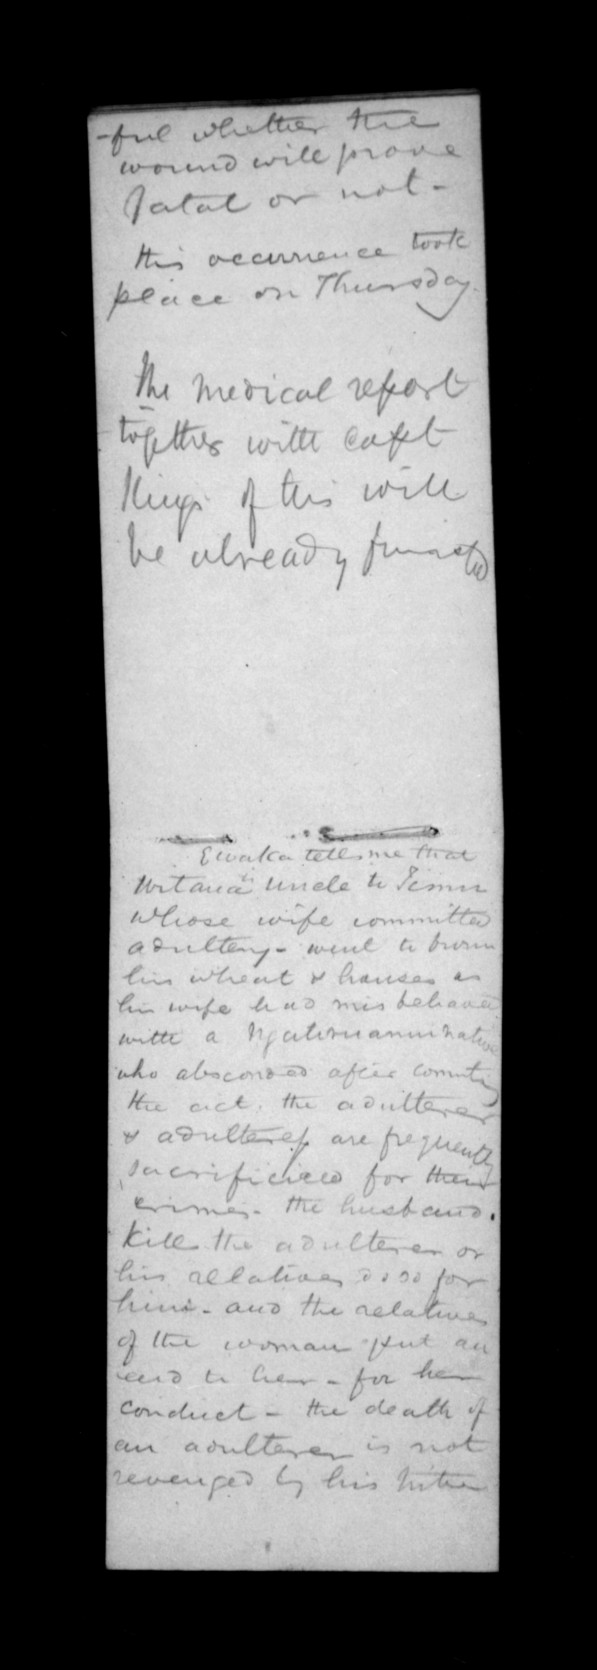 -ful whether the
wound will prove
fatal or not -
this occurrence took
place on Thursday.
The medical report
together with Capt
Kings of this will
be already
Ewaka tells me that
uncle to
whose wife committed
adultery - went to burn
his wheat & houses as
his wife had misbehaved
with a native
who absconded after comiting
the act. the adulterer
& adulteress are frequently
sacrificied for their
crimes - the husband.
kills the adulterer or
his relatives do so for
him - and the relatives
of the woman put an
end to her - for her
conduct - the death of
an adulterer is not
revenged by his tribe